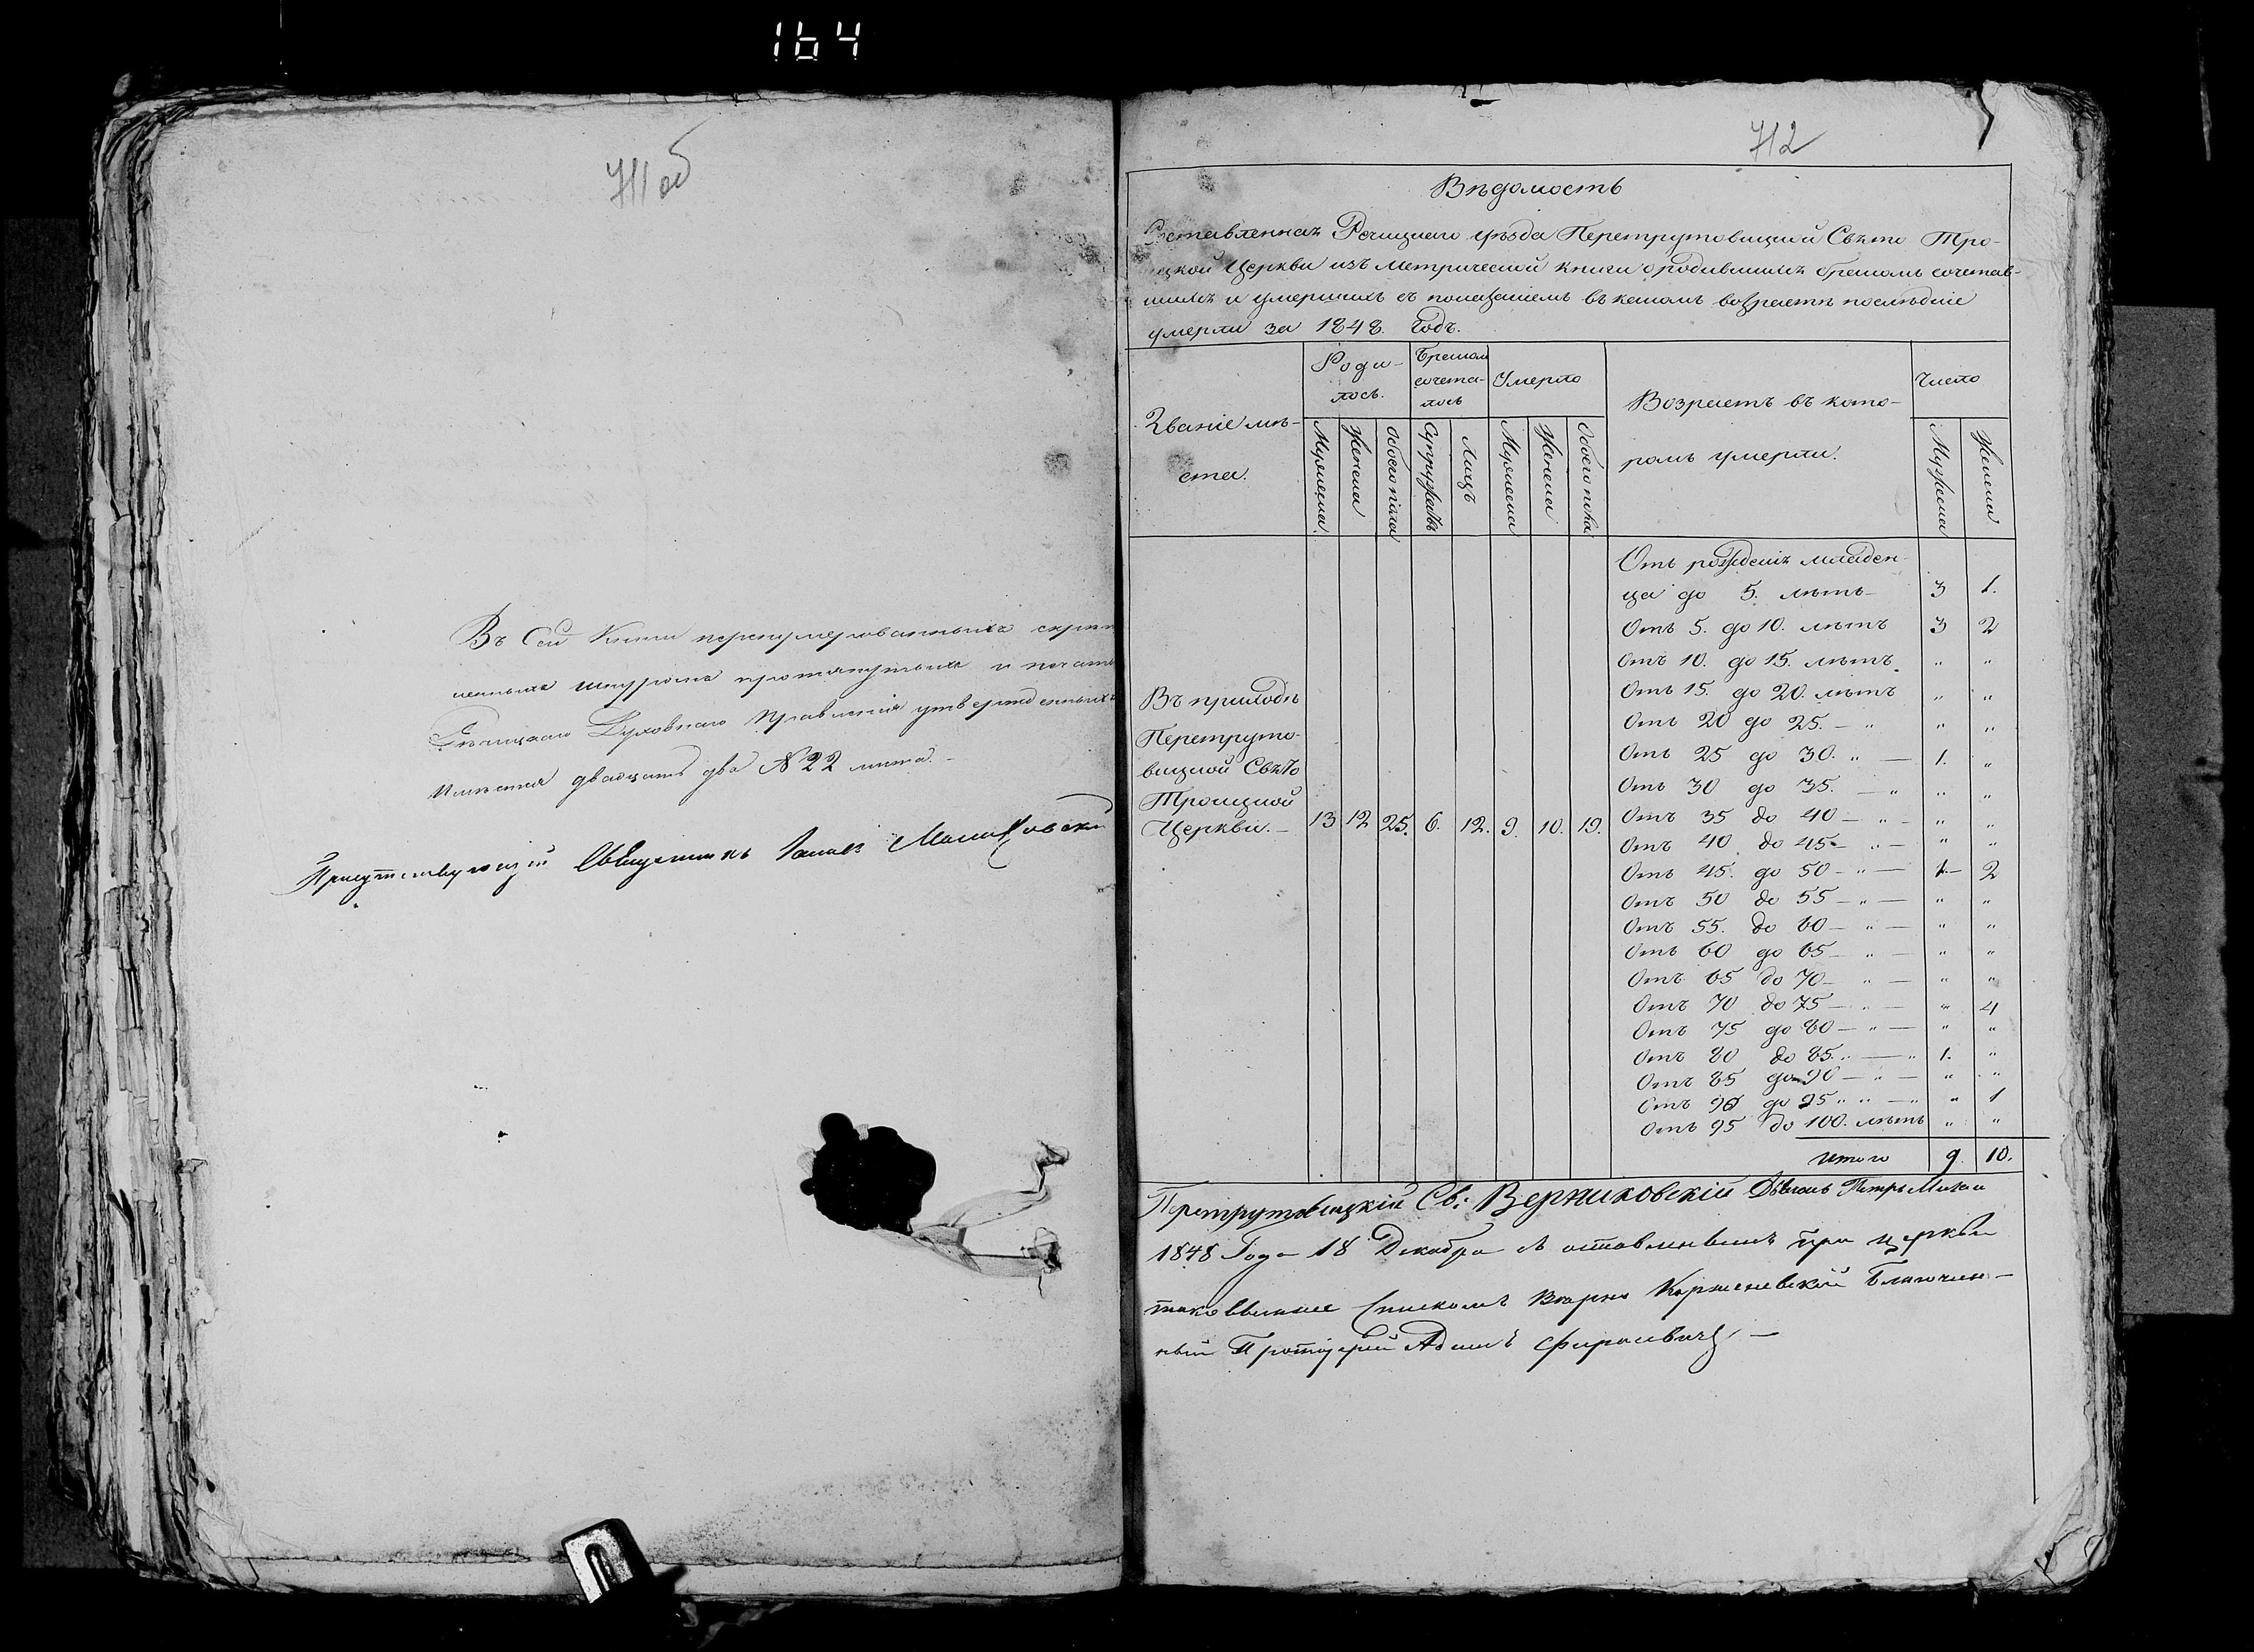 164
711 об
Въ сей Книги перенумерованныхъ скреп
ленныхъ шнуромъ протянутыхъ и печатью
Речицкаго Духовнаго Правленія утвержденныхъ
имеется двадцать два № 22 листа.
Присутствующій Священникъ Малиновски
712
Вѣдомость
Составленная Речицкаго уѣзда Перетрутовицкой Свято Тро-
ицкой Церкви изъ Метрической книги о родившихъ бракомъ сочетав-
шихъ и умершихъ съ показаніемъ въ какомъ возрастѣ послѣдніе
умерли за 1848. Годъ.
Званіе мѣ-
ста.
Роди-
лось.
Бракомъ
сочета-
лось
Умерло
Возрастъ въ кото-
ромъ умерли.
Число
Мужеска
Женска
Обоего пола
Супружествъ
Лицъ
Мужеска
Женска
Обоего пола
Мужеска
Женска
Отъ рожденія младен-
ца до 5. лѣтъ 3 1.
Отъ 5. до 10. лѣтъ 3 2
Отъ 10. до 15. лѣтъ " "
Отъ 15. до 20. лѣтъ " "
Отъ 20 до 25. — " " "
Отъ 25 до 30. " — 1. "
Отъ 30 до 35. — " " "
Отъ 35 до 40 — " — " "
Отъ 40 до 45 — " — " "
Отъ 45. до 50 — " — 1. 2
Отъ 50 до 55 — " — " "
Отъ 55. до 60 — " — " "
Отъ 60 до 65 — " — " "
Отъ 65 до 70 — " — " "
Отъ 70 до 75 — " — " 4
Отъ 75 до 80 — " — " "
Отъ 80 до 85. " — " 1. "
Отъ 85 до 90 — " — " "
Отъ 90 до 95 " " — " " 1
Отъ 95 до 100. лѣтъ " "
Итого 9. 10.
Въ приходѣ
Перетруто-
вицкой Свято
Троицкой
Церкви. — 13 12 25. 6. 12. 9. 10. 19.
Перетрутовицкій Св: Верниковскій Дьячокъ Петръ
1848 Года 18 Декабря оставленъ при церкви
Благочин-
ный Протоіерей Адамъ